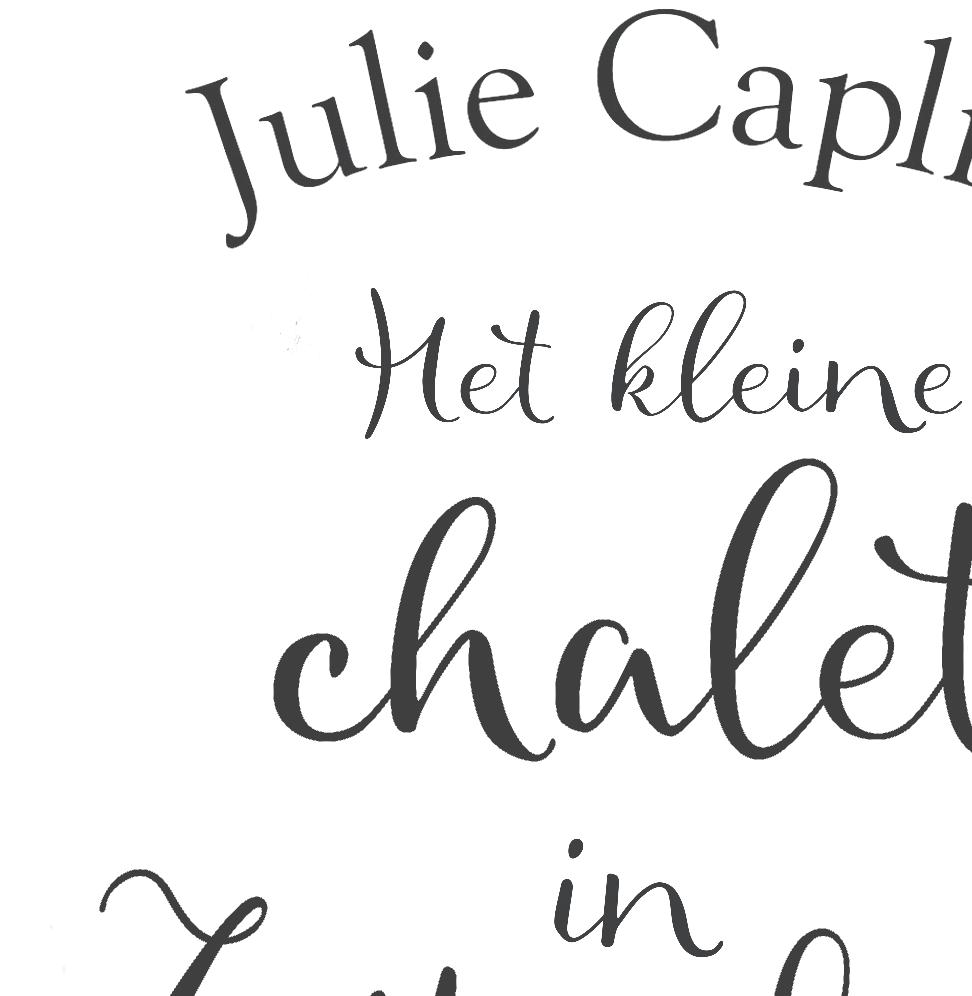 Julie Capli
Het kleine
chalet
in